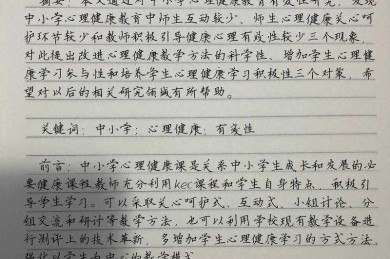 摘要：本文通过对中小学心理健康教育有效性研究，发现
中小学心理健康教育中师生互动较少、师生心理健康关心呵
护环节较少和教师积极引导健康心理有效性较少三个现象，
对此提出改进心理健康教学方法的科学性、增加学生心理健
康学习参与性和培养学生心理健康学习积极性三个对策，希
望对以后的相关研究领域有所帮助。
关健词：中小学；心理健康；有效性
前言：中小学心理健康课是关系中小学生成长和发展的必
要健康课程教师充分利用kec课程和学生自身特点，积极引
导学生学习。可以采取关心呵护式、互动式、小组讨论、分
组交流和研讨等教学方法，也可以利用学校现有教学设备进
行测评上的技术革新，多增加学生心理健康学习的方式方法，
强化以学生为中心的教学模式